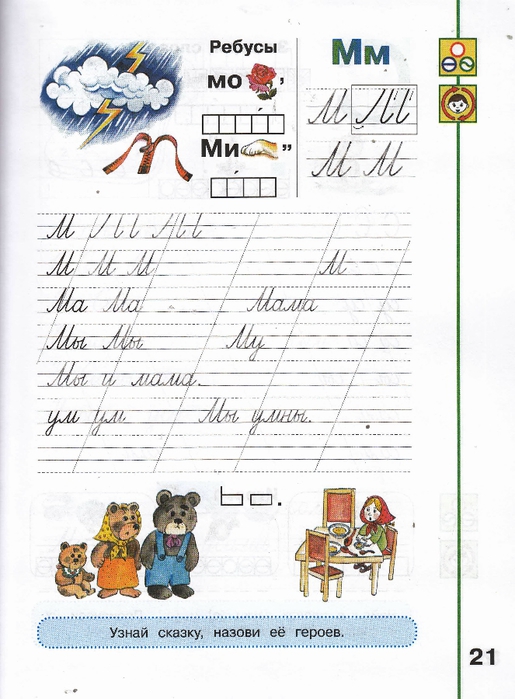 Ребусы
Мм
мо ,
Ми ”
М
М М
М
М М М М
Ма Ма Мама
Мы Мы Му
Мы и мама.
ум ум Мы умны.
Узнай сказку, назови её героев.
21